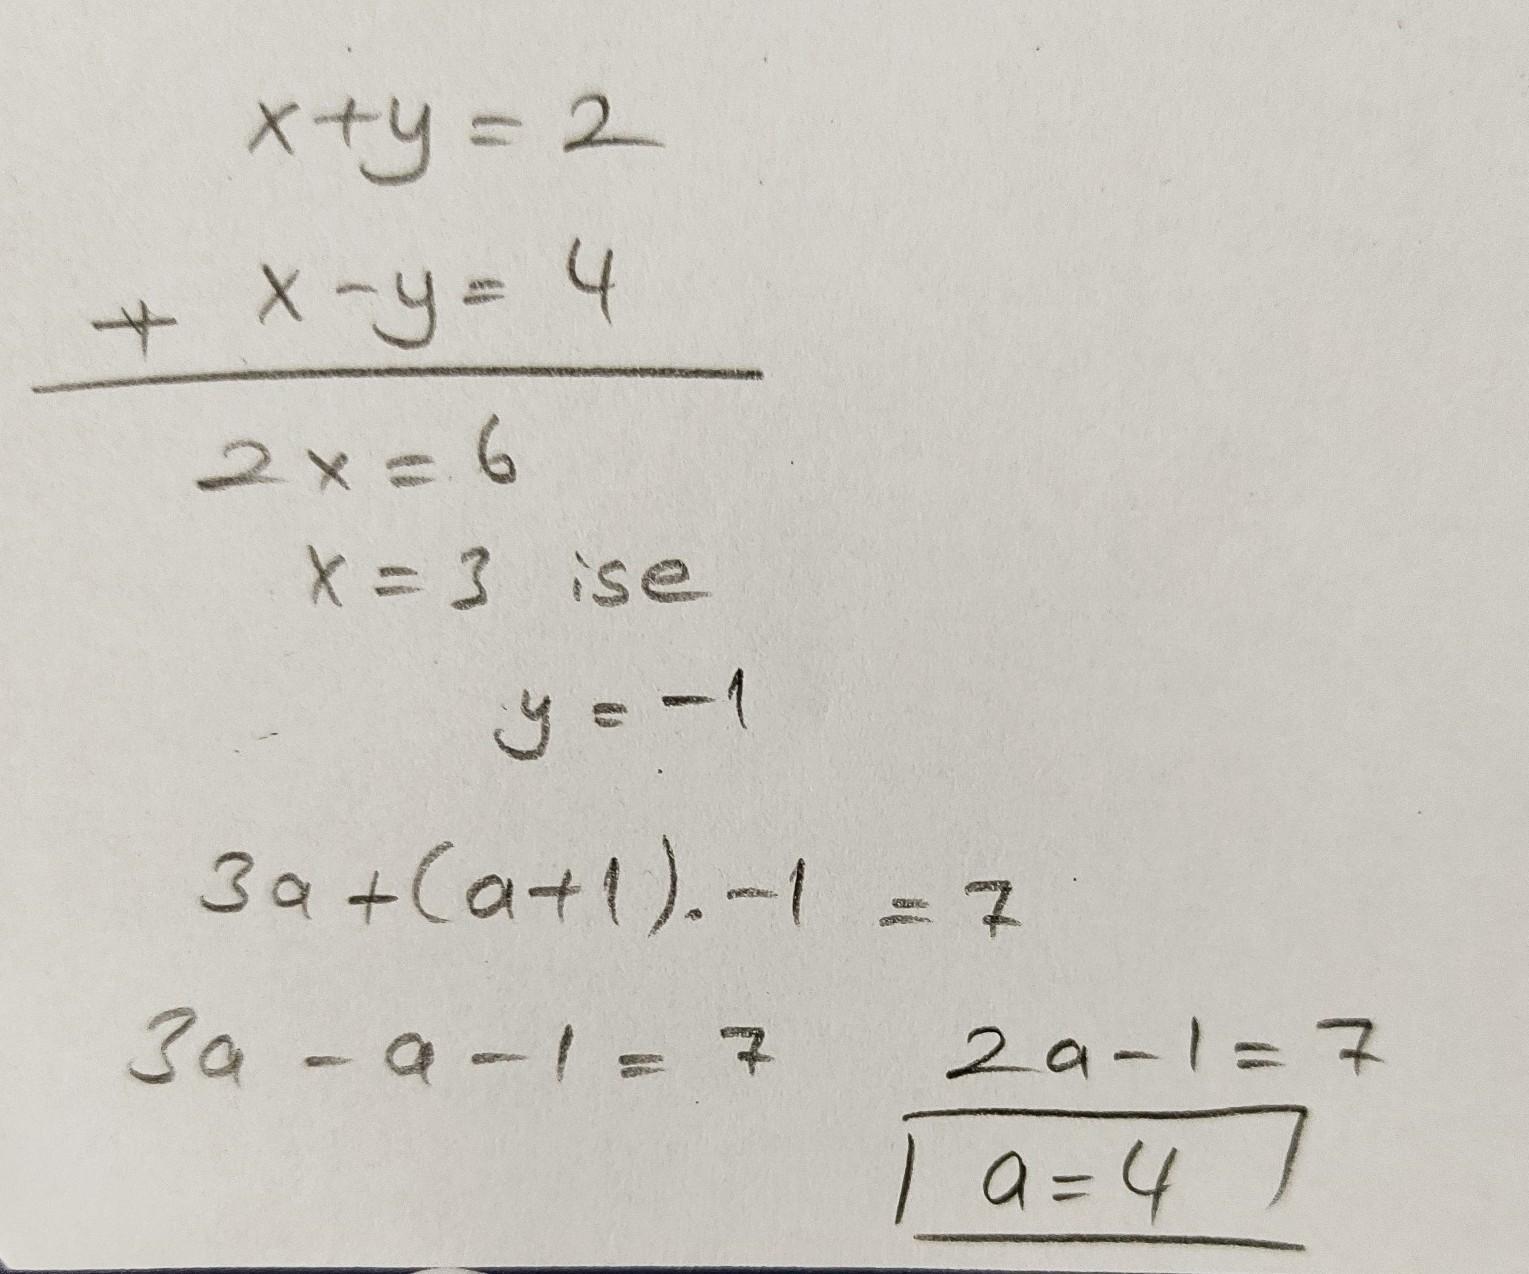 x+y=2
+ x-y=4
2x=6
x=3 ise
y=-1
3a+(a+1).-1=7
3a-a-1=7 2a-1=7
a=4